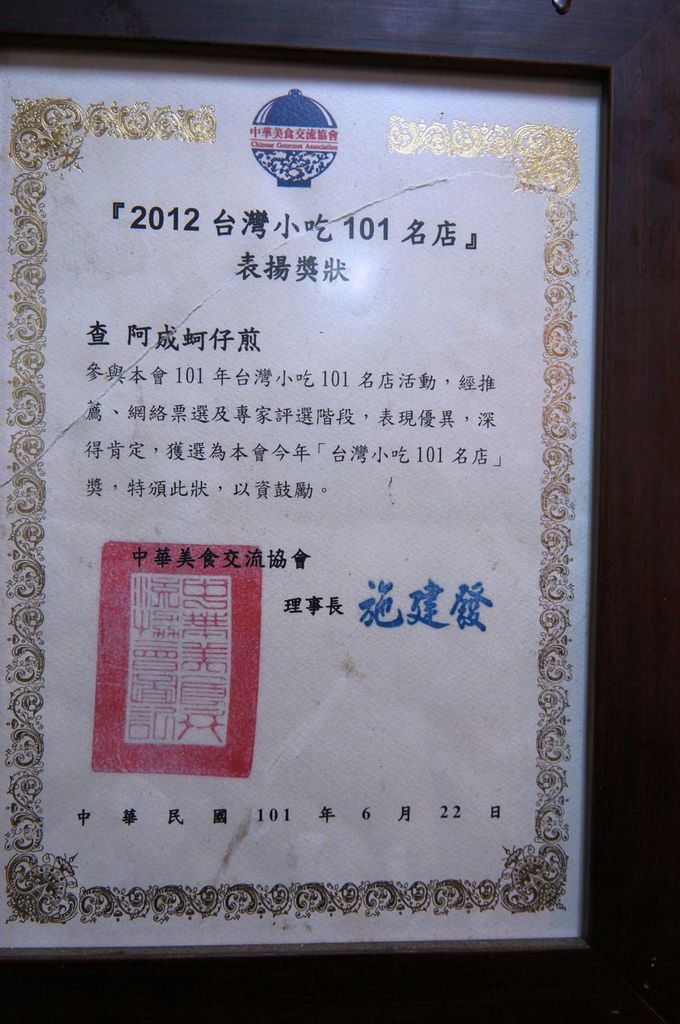 中華美食交流協會
Chinese Gourmet Association
『2012 台灣小吃 101 名店』
表揚獎狀
查 阿成蚵仔煎
參與本會 101 年台灣小吃 101 名店活動，經推
薦、網絡票選及專家評選階段，表現優異，深
得肯定，獲選為本會今年「台灣小吃 101 名店」
獎，特頒此狀，以資鼓勵。
中華美食交流協會
理事長 施建發
中華美食交
流協會圖記
中 華 民 國 101 年 6 月 22 日